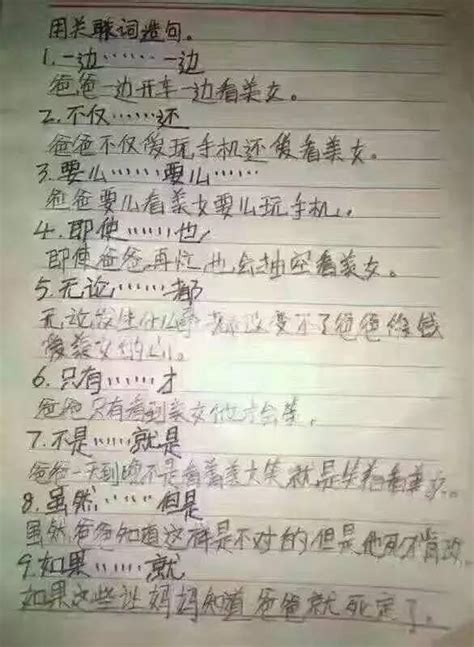 用关联词造句。
1.一边……一边
爸爸一边开车一边看美女。
2.不仅……还
爸爸不仅爱玩手机还爱看美女。
3.要么……要么……
爸爸要么看美女要么玩手机。
4.即使……也
即使爸爸再忙也会抽空看美女。
5.无论……都
无论发生什么事都改变不了爸爸
爱美女的心。
6.只有……才
爸爸只有看到美女他才会笑。
7.不是……就是
爸爸一天到晚不是看着美女笑就是笑着看美女。
8.虽然……但是
虽然爸爸知道这样是不对的但是他死不肯改。
9.如果……就
如果这些让妈妈知道爸爸就死定了。